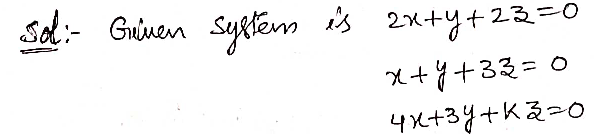 Sol:- Given system is 2x+y+2z=0
x+y+3z=0
4x+3y+Kz=0